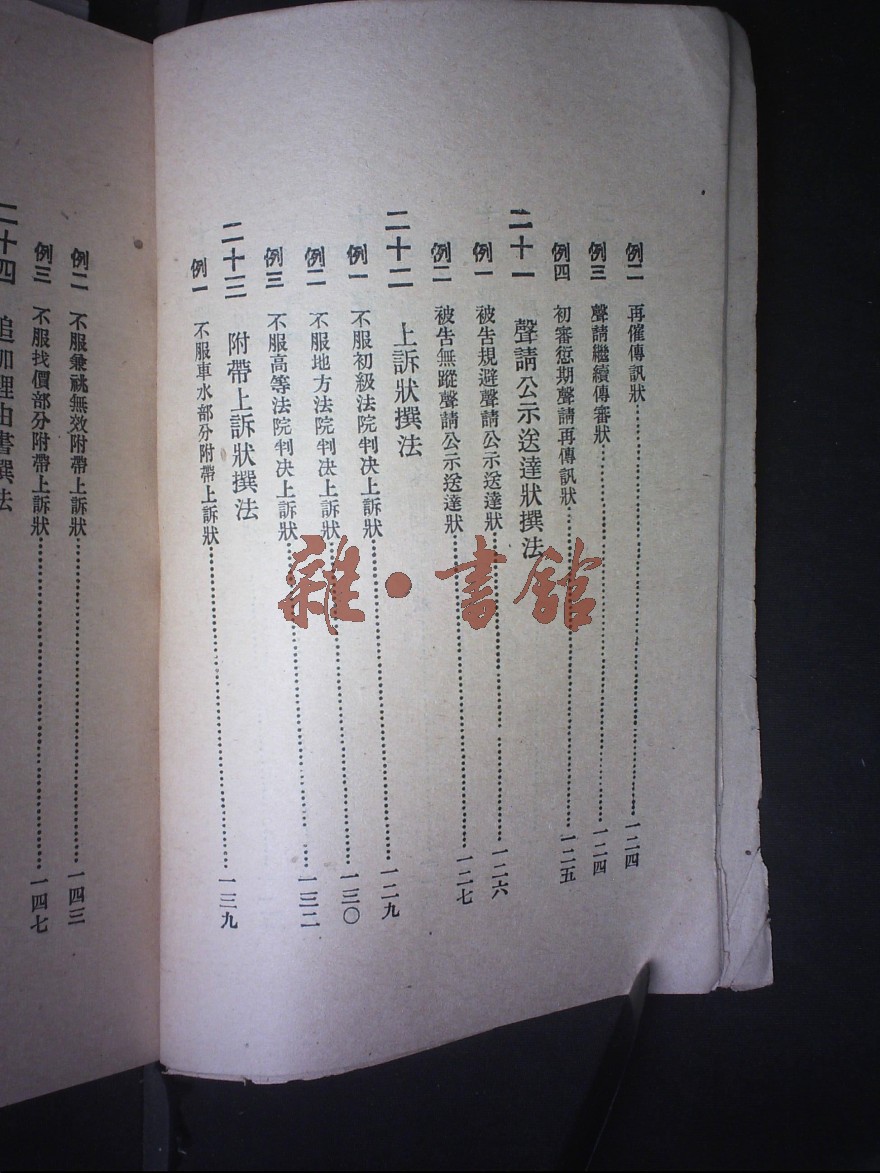 例二　再催傳訊狀……一二四
例三　聲請繼續傳審狀……一二四
例四　初審愆期聲請再傳訊狀……一二五
二十一　聲請公示送達狀撰法
例一　被告規避聲請公示送達狀……一二六
例二　被告無蹤聲請公示送達狀……一二七
二十二　上訴狀撰法
例一　不服初級法院判决上訴狀……一二九
例二　不服地方法院判决上訴狀……一三〇
例三　不服高等法院判决上訴狀……一三二
二十三　附帶上訴狀撰法
例一　不服車水部分附帶上訴狀……一三九
例二　不服兼祧無效附帶上訴狀……一四三
例三　不服找價部分附帶上訴狀……一四七
二十四　追加理由書撰法
雜·書館